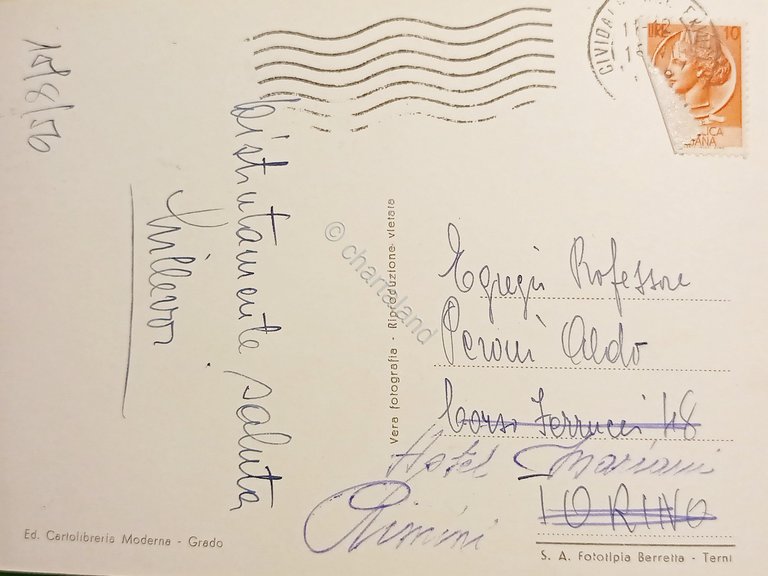 14/8/56
Distintamente saluta
LIRE 10
CIVIDALE
Vera fotografia - Riproduzione vietata
© chartaland
Egregio Professore
Peroni Aldo
Corso Ferrucci 48
Hotel Mariani
TORINO
Rimini
Ed. Cartolibreria Moderna - Grado
S. A. Fototipia Berretta - Terni